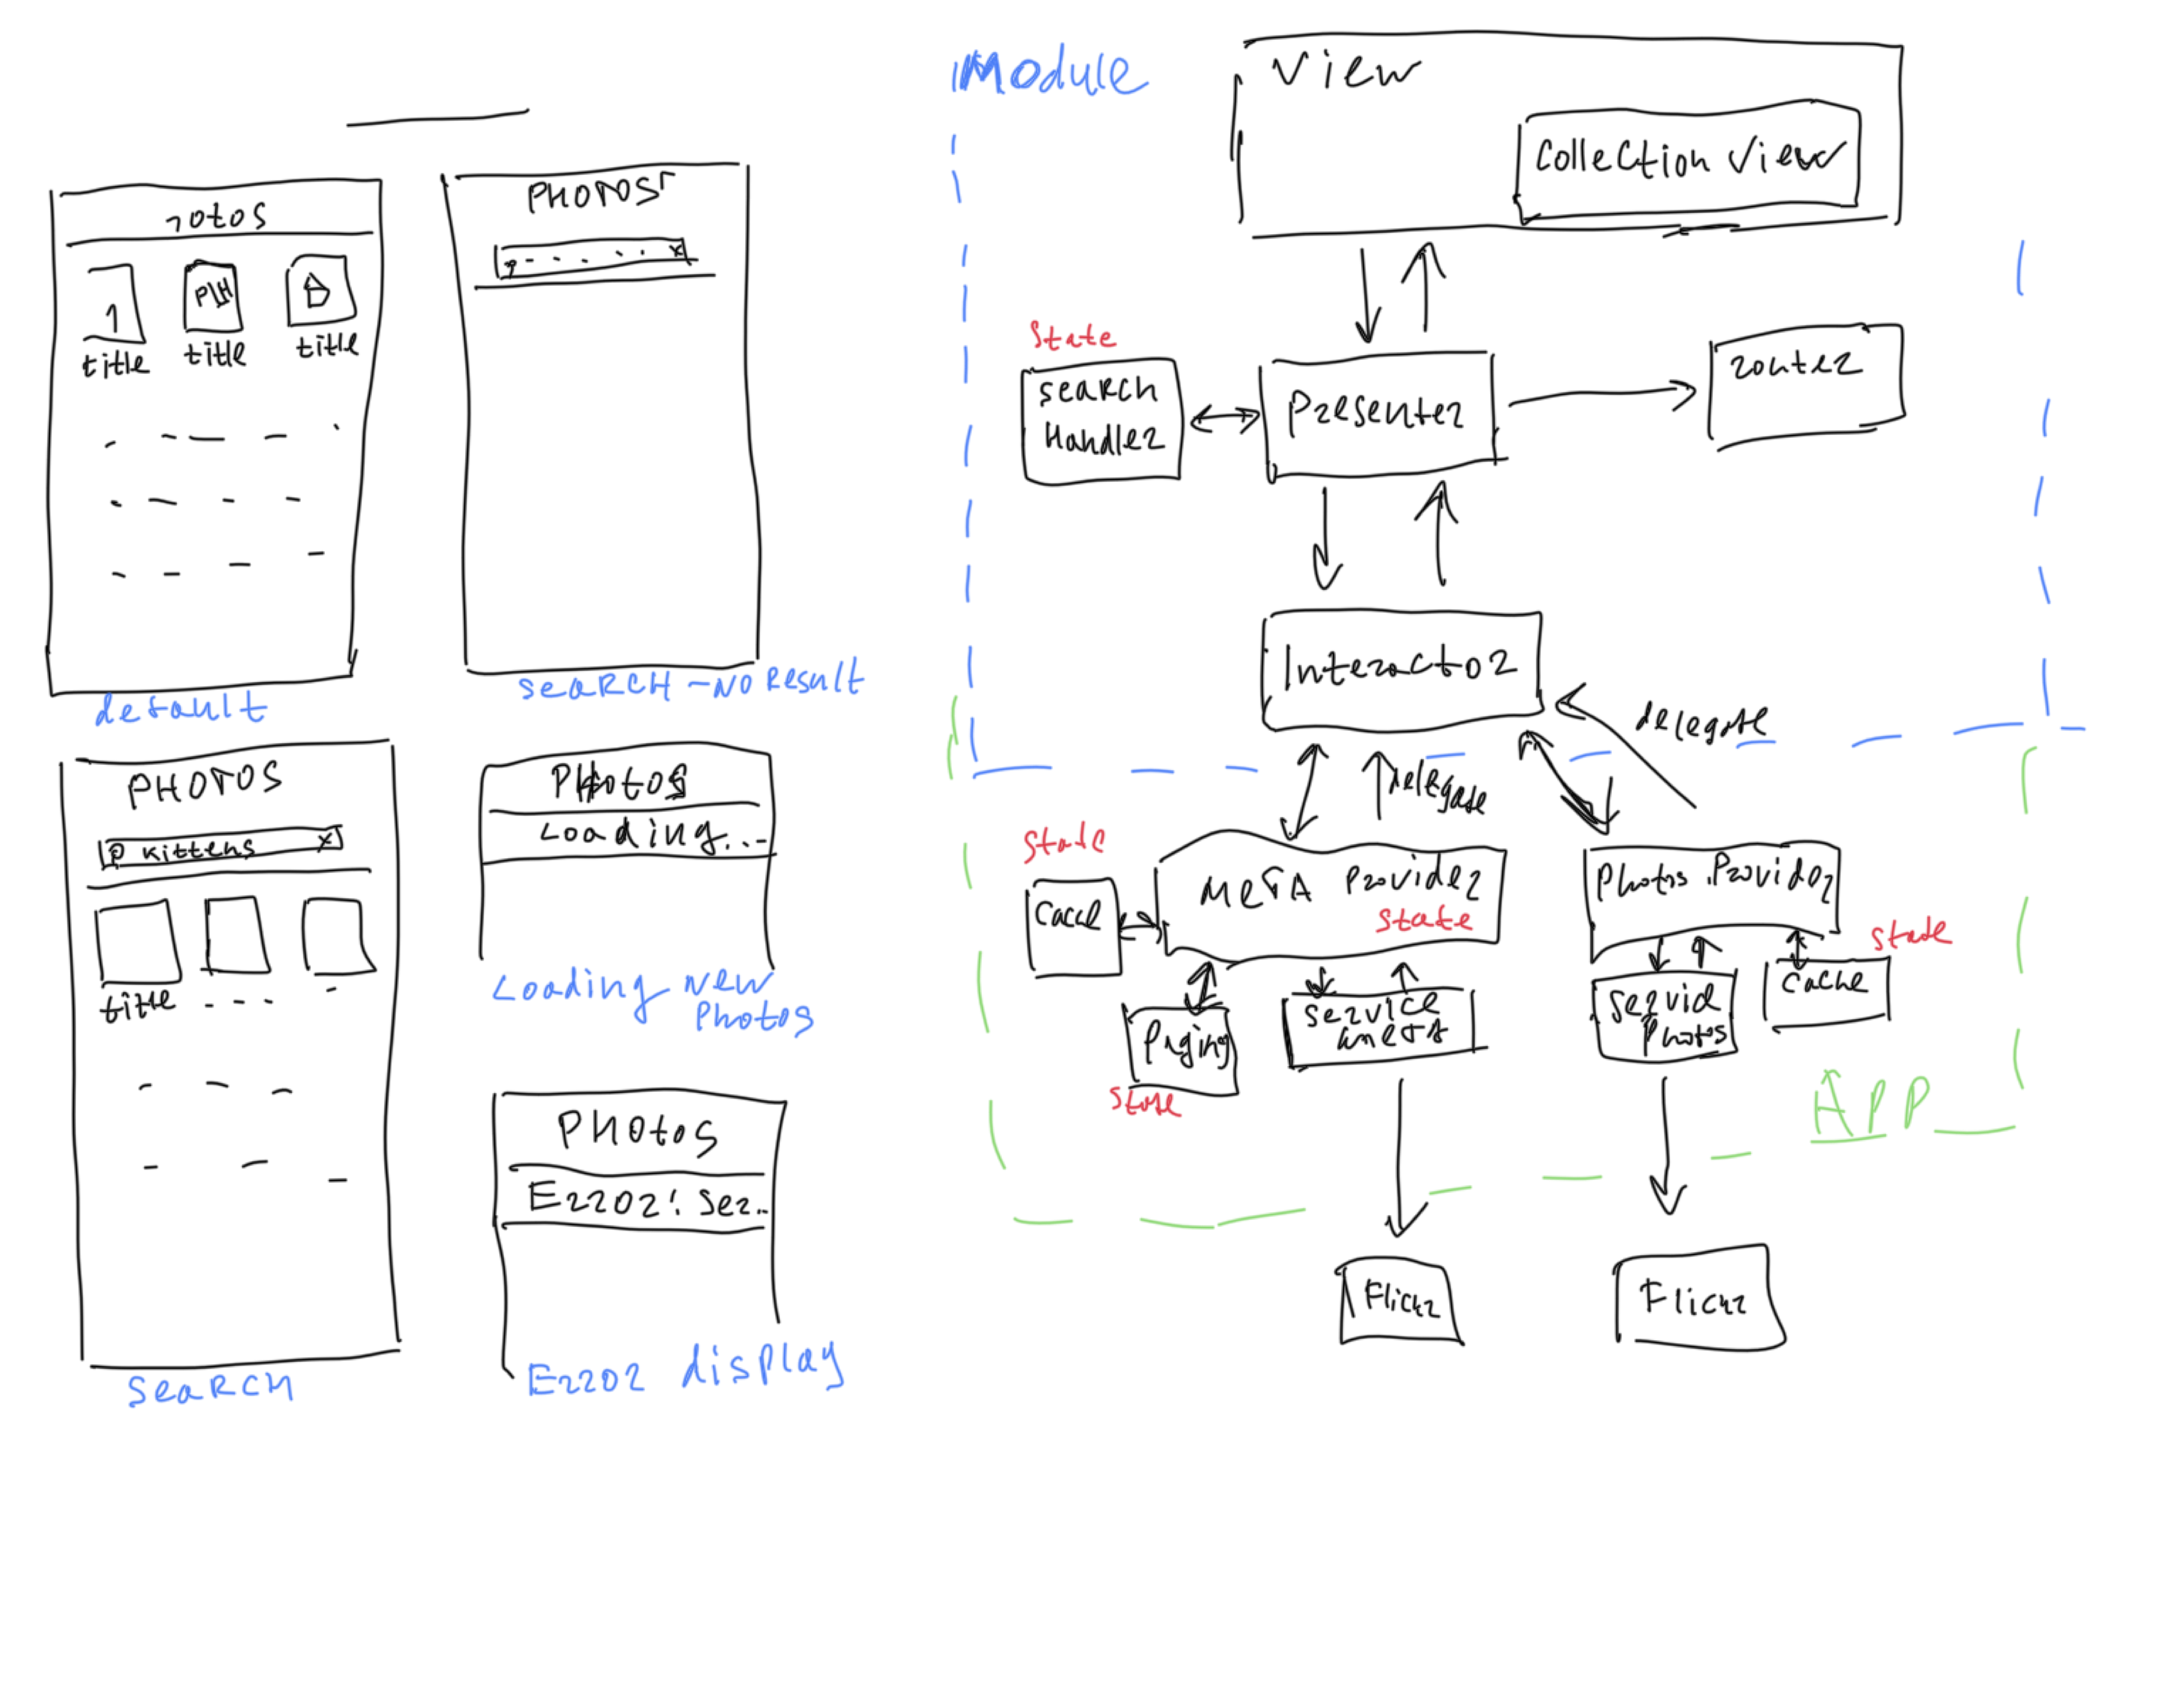 PHOTOS
title
title
title
default
PHOTOS
x
SEARCH - NO RESULT
PHOTOS
kittens x
title
SEARCH
Photos
Loading...
Loading new
photos
PHotos
Error: Ser..
Error display
Module
View
Collection View
State
Search
Handler
Presenter
Router
Interactor
delegate
delegate
State
Cache
META Provider
State
Paging
State
Service
Photos Provider
State
Cache
Photos
APP
Flickr
Flickr